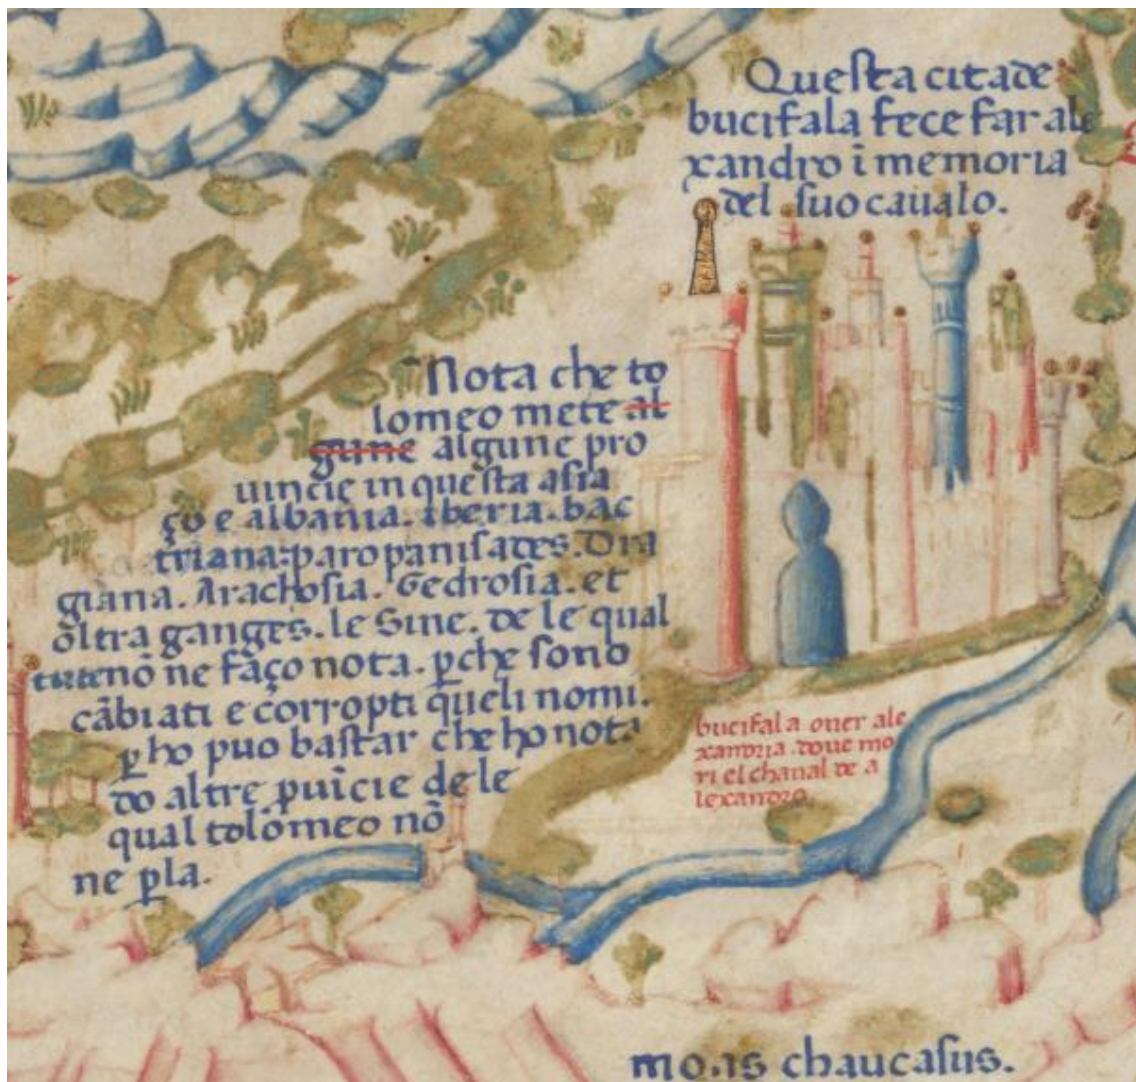 Queſta citade
bucifala fece far ale
xandro ī memoria
del ſuo caualo.
Nota che to
lomeo mete al
gune algune pro
uincie in queſta aſia
ço e albania. iberia. bac
triana. paropaniſades. Dra
giana. Arachoſia. Gedroſia. et
oltra ganges. le Sine. de le qual
tute nō ne faço nota. ꝑche ſono
cābiati e corropti queli nomi.
ꝑho puo baſtar che ho nota
do altre ꝓuīcie de le
qual tolomeo nō
ne ꝑla.
bucifala ouer ale
xandria. doue mo
ri el chaual de a
lexandro.
mo.ns chaucaſus.